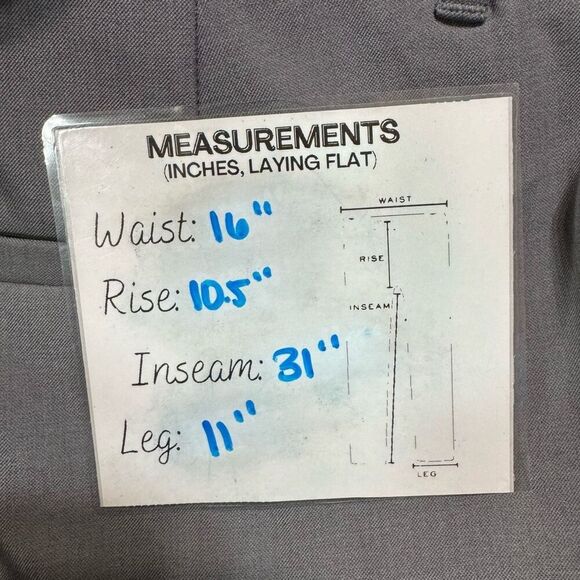 MEASUREMENTS
(INCHES, LAYING FLAT)
Waist: 16"
Rise: 10.5"
Inseam: 31"
Leg: 11"
WAIST
RISE
INSEAM
LEG